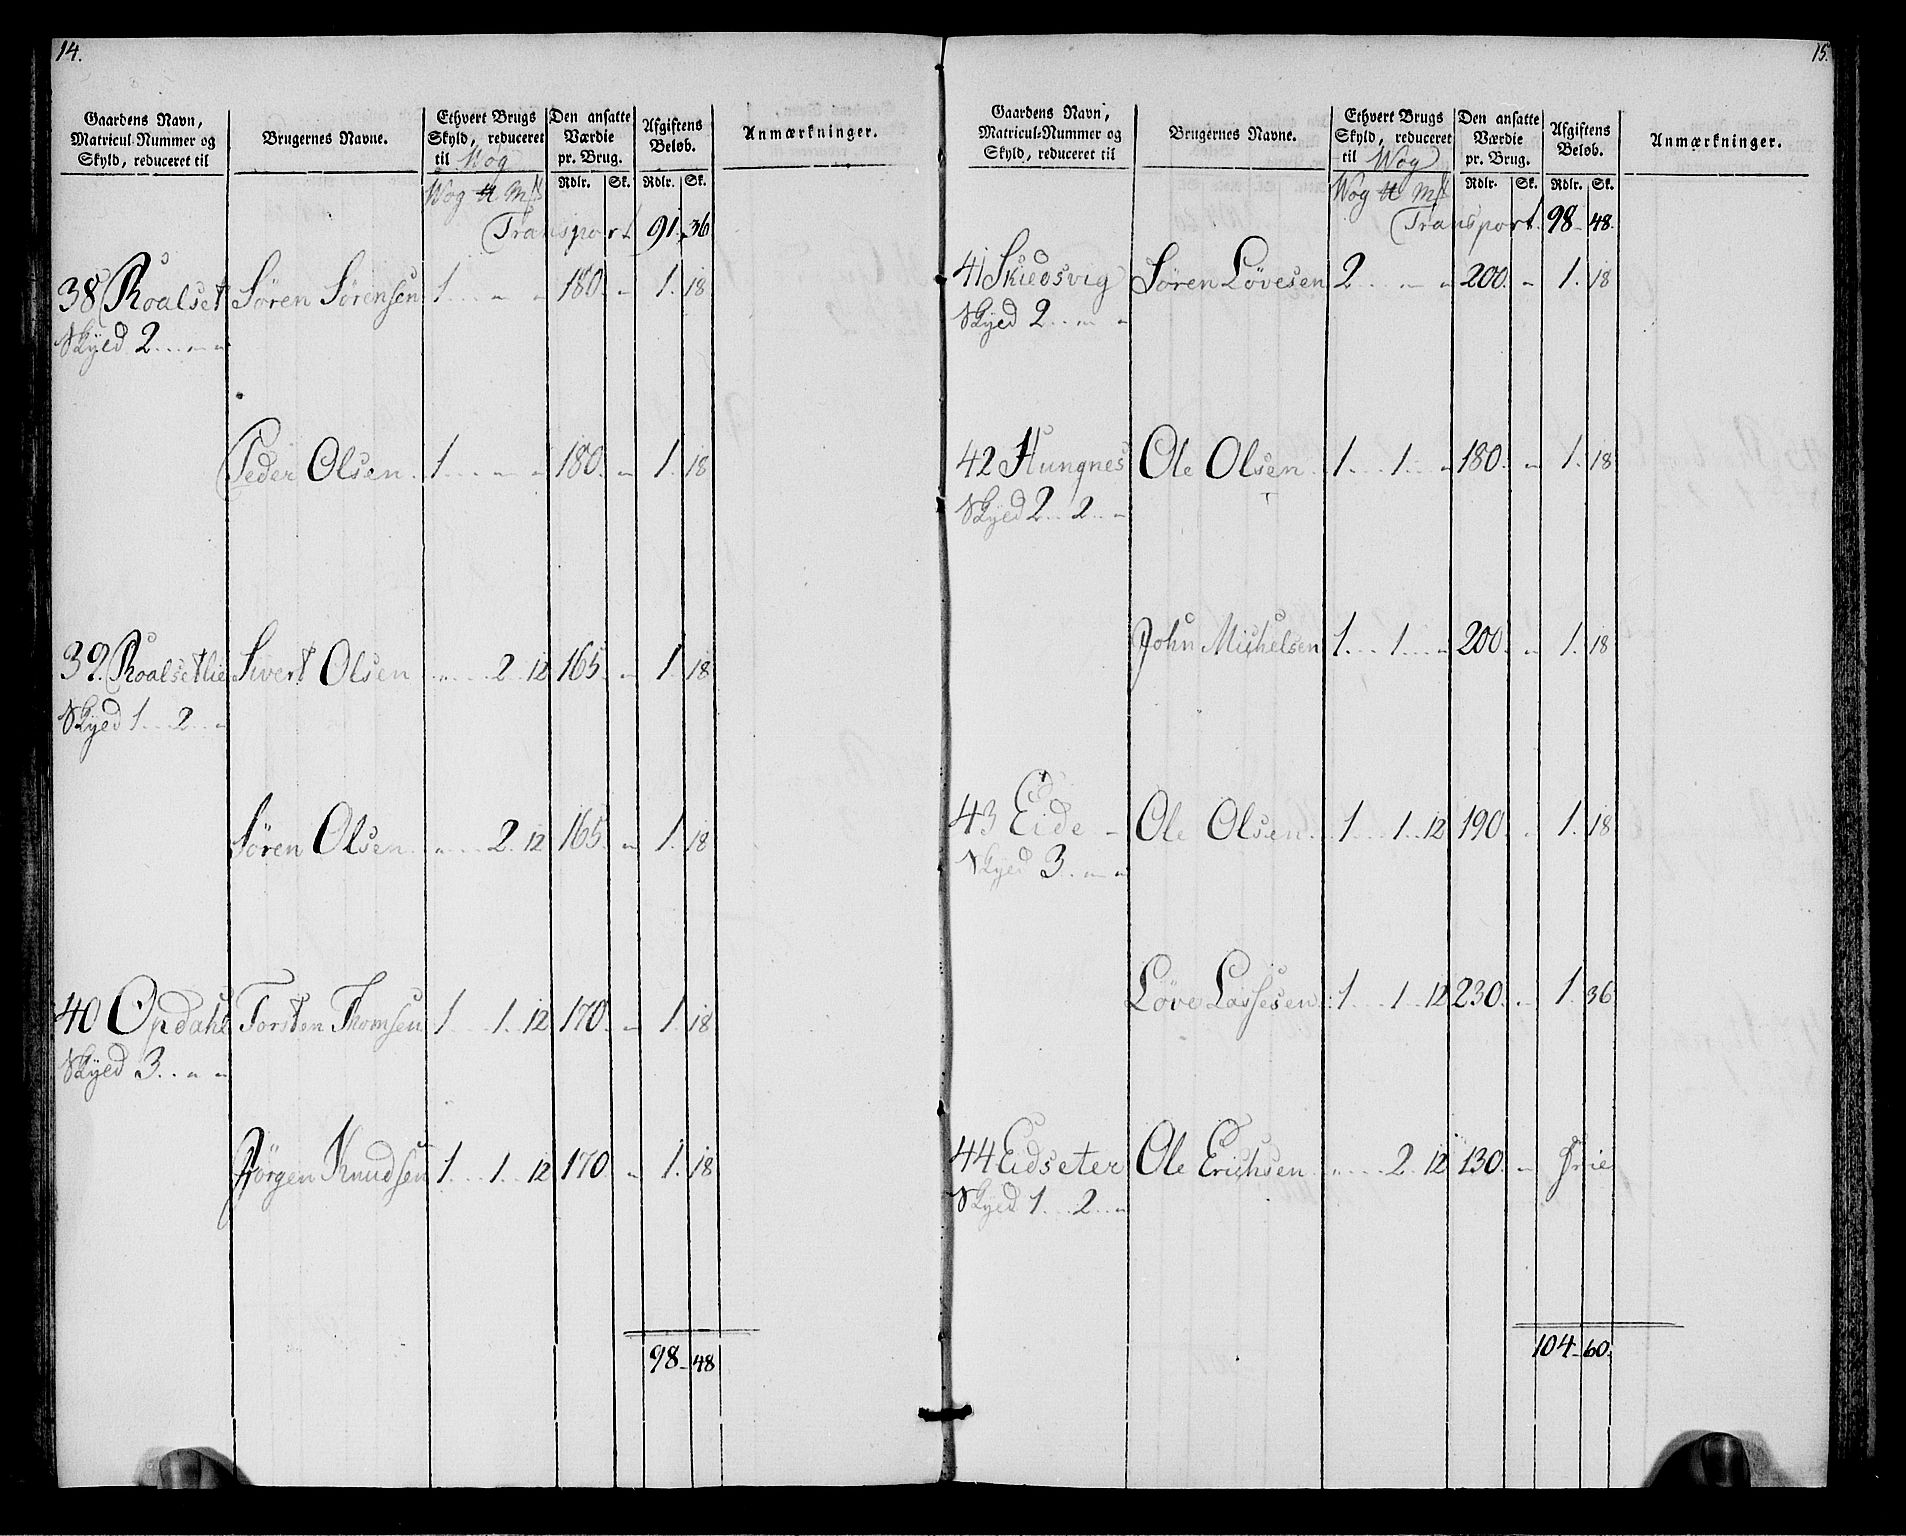 14.
Gaardens Navn, Matricul-Nummer og Skyld, reduceret til
Brugernes Navne.
Ethvert Brugs Skyld, reduceret til Wog
Den ansatte Værdie pr. Brug.
Afgiftens Beløb.
Anmærkninger.
Wog Rdlr. Sk. Rdlr. Sk.
Transport 91. 36
38 Roalset Søren Sørensen 1 . . . „ „ 180. „ 1. 18
Skyld 2 . . . „ „
Peder Olsen. 1 . . . „ „ 180. „ 1. 18
39. Roalsetlie Sivert Olsen „ . . . 2 . . 12 165. „ 1. 18
Skyld 1 . . . 2 . . „
Søren Olsen. „ . . . 2. 12 165. „ 1. 18
40 Opdahl Torsten Thomsen 1 . . . 1. 12 170. „ 1. 18
Skyld 3 . . „ „
Jørgen Knudsen 1 . . . 1 . . 12 170. „ 1. 18
98 „ 48
15.
Gaardens Navn, Matricul-Nummer og Skyld, reduceret til
Brugernes Navne.
Ethvert Brugs Skyld, reduceret til Wog
Den ansatte Værdie pr. Brug.
Afgiftens Beløb.
Anmærkninger.
Wog Rdlr. Sk. Rdlr. Sk.
Transport. 98 „ 48.
41 Skiedsvig Søren Løvesen 2 . . . „ „ 200. „ 1. 18
Skyld 2 . . „ „
42 Hungnes Ole Olsen. 1 . . . 1 . . „ 180. „ 1. 18
Skyld 2 . . 2 . . „
John Michelsen 1 . . . 1 . . . „ 200. „ 1. 18
43 Eide Ole Olsen. 1 . . . 1 . . 12 190. „ 1. 18
Skyld 3 . . „ „
Løve Lassesen. 1 . . . 1 . . 12 230. „ 1. 36
44 Eidseter Ole Erichsen „ . . . . 2 . . 12 130. „ Frie
Skyld 1 . . . 2 . . „
104 „ 60.